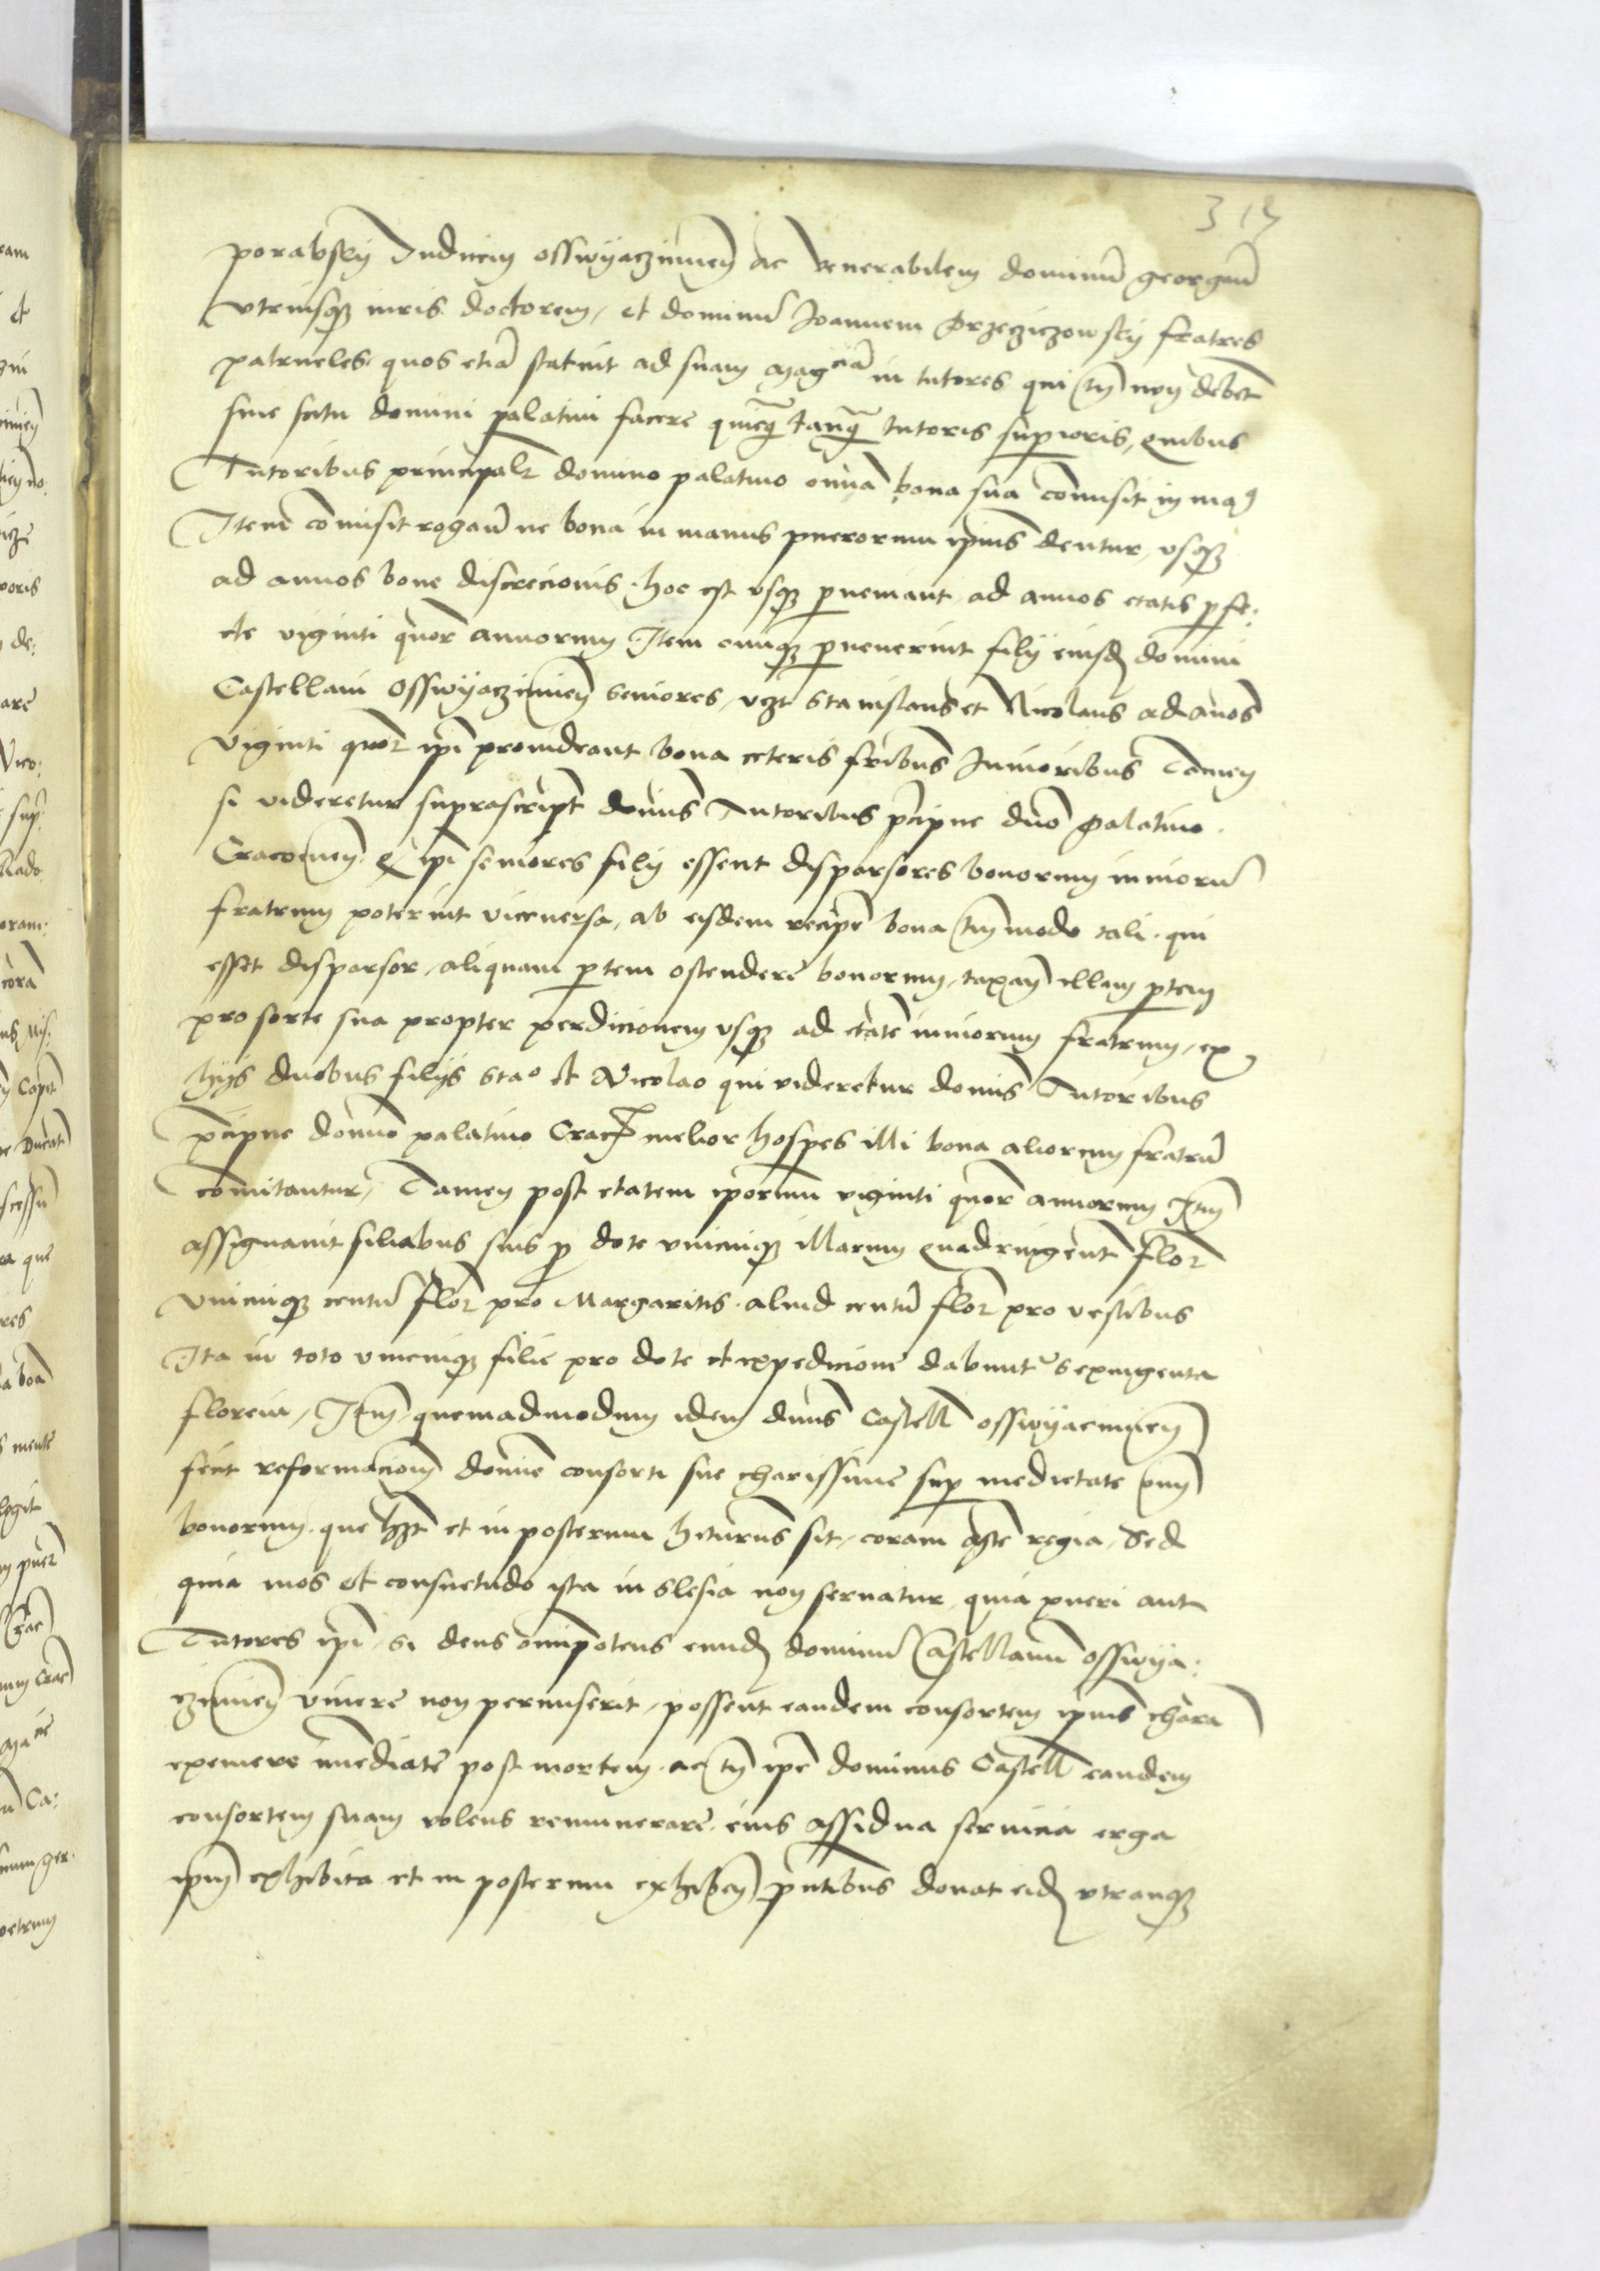 315
porabsky Iudicem osswyaczimen ac venerabilem dominu georgiu
vtriusq iuris doctorem, et dominu Joannem Przecziczowsky fratres
patrueles. quos etia statuit ad suam magciã in tutores qui tn non debet
sine scitu domini palatini facere quicq tanq tutoris superioris, quibus
Tutoribus principalr domino palatino omnia bona sua comisit in mag
Item comisit rogaũ ne bona in manus puerorum ipius dentur, vsq
ad annos bone discrecionis. hoc est vsq pueniant ad annos etatis pfe:
cte viginti quor annorum Item cumq puenerint filij eiusd domini
Castellani Osswyaczimien seniores, vzt stanislaus et Nicolaus ad annos
viginti quor ipi prouideant bona ceteris fribus Iunioribus Tamen
si videretur suprascript domis Tutoribus pcipue duo Palatino
Cracouien. q ipi seniores filij essent disparsores bonorum iuniorũ
fratrum poterint viceuersa, ab eisdem recipe bona tm modo tali. qui
esset disparsor, aliquam ptem ostendere bonorum, taxan illam ptem
pro sorte sua propter perdicionem vsq ad etate iuniorum fratrum, ex
hijs duobus filijs stao et Nicolao qui videretur domis Tutoribus
pcipue domno palatino Crac melior hospes illi bona aliorum fratrũ
comitantur, Tamen post etatem iporum viginti quor annorum Itm
assignauit filiabus suis p dote vnicuiq illarum quadringent flor
vnicuiq centu flor pro Margaritis. aliud centu flor pro vestibus
Ita in toto vnicuiq filie pro dote et expedicione dabunt sexingenta
florein, Itm, quemadmodum idem duns Castell osswyacimien
fecit reformacione domne consorti sue charissime sup medietate oim
bonorum. que hzt et in posterum hiturus sit, coram mste regia, Sed
quia mos et consuetudo ista in slesia non seruatur, quia pueri aut
Tutores ipi, si deus omipotens eund dominu Castellanu Osswya:
czimien viuere non permiserit, possent eandem consortem ipius chara
exemere imediate post mortem. ac tn ipe dominus Castell eandem
consortem suam volens remunerare. eius assidua seruicia erga
ipm exhibita et in posterum exhiben pntibus donat eid vtranq